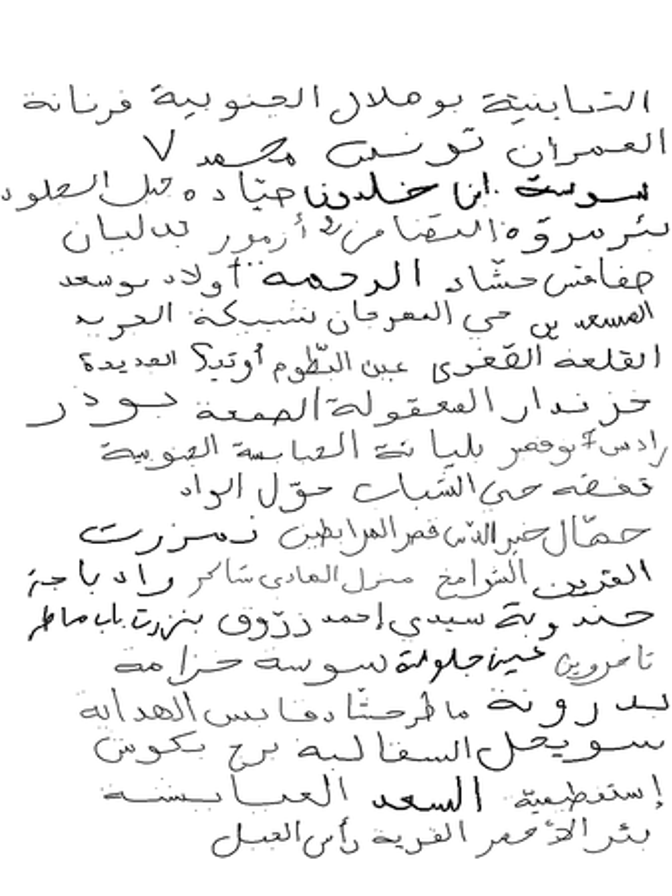 الشابينية بوهلال الجنوبية فرنانة
العمران تونس محمد ٧
سوسة ابن خلدون جبل الجلود
بئر مروة التضامن أزمور بدليان
صفاقس حشاد الرحمة أولاد بوسعد
المسعدين حي المهرجان شبيكة الجريد
القلعة الصغرى عين البطوم أوتيك الجديدة
خزندار المعقولة الجمعة بوذر
رادس بوفيصر بليانة العبابسة الجنوبية
قفصة حي الشباب حوّل الواد
حمّال خير الدين قصر المرابطين زمزرت
القرين الشرامخ منزل الهادي شاكر واد باجة
جندوبة سيدي إحمد زرّوق بنزرت باب ماطر
تاجروين عين جلولة سوسة حزامة
بدرونة ماطر حشاد قابس الهدابة
سويحل السقالبة برج بكوش
إسنفطيمية السعد العبابسة
بئر الأحمر القرية رأس الجبل